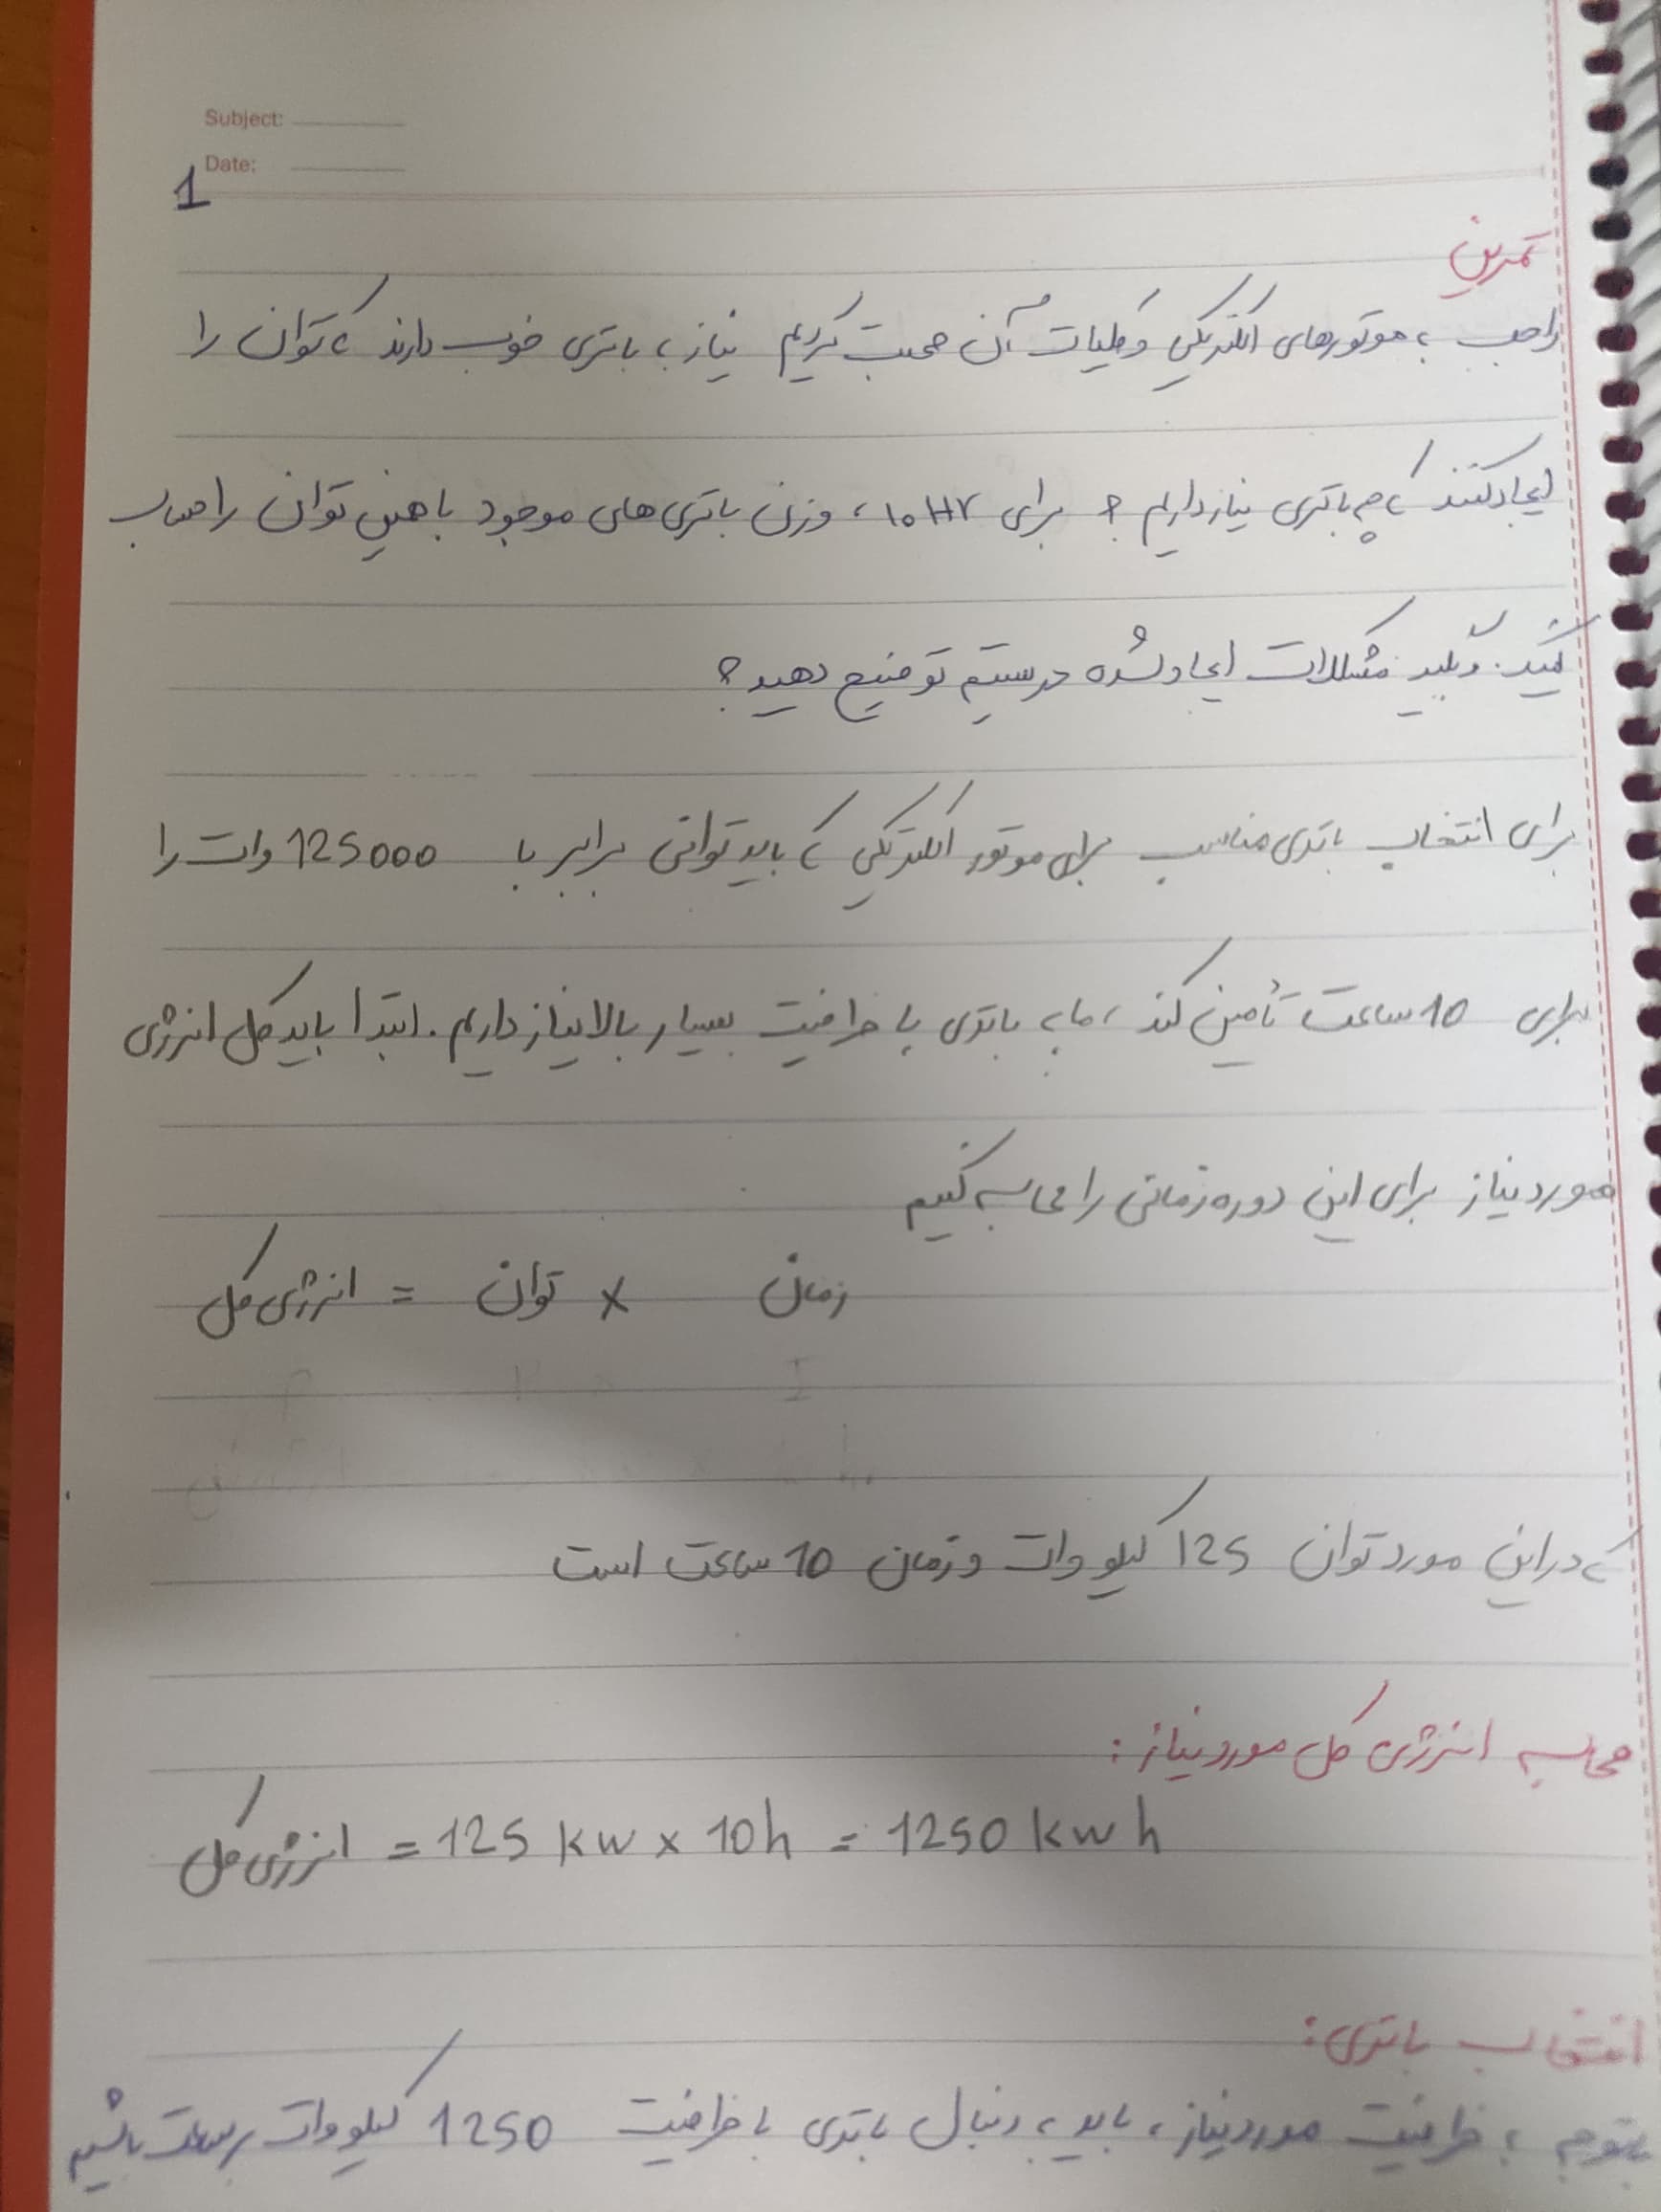 Subject:
Date:
1
تمرین
راجب به موتورهای الکتریکی و کلیات آن صحبت کردیم نیاز به باتری خوب دارند که توان را
ایجاد کنند که چه باتری نیاز داریم؟ برای ۱۰ Hr، وزن باتری های موجود با همین توان را حساب
کنید. و کلید مشکلات ایجاد شده در سیستم توضیح دهید؟
برای انتخاب باتری مناسب برای موتور الکتریکی که باید توانی برابر با 125000 وات را
برای 10 ساعت تأمین کند، ما به باتری با ظرفیت بسیار بالا نیاز داریم. ابتدا باید کل انرژی
مورد نیاز برای این دوره زمانی را محاسبه کنیم
انرژی کل = توان × زمان
که در این مورد توان 125 کیلو وات و زمان 10 ساعت است
محاسبه انرژی کل مورد نیاز:
انرژی کل = 125 kw × 10h = 1250 kwh
انتخاب باتری:
باتوجه به ظرفیت مورد نیاز، باید به دنبال باتری با ظرفیت 1250 کیلو وات بر ساعت باشیم